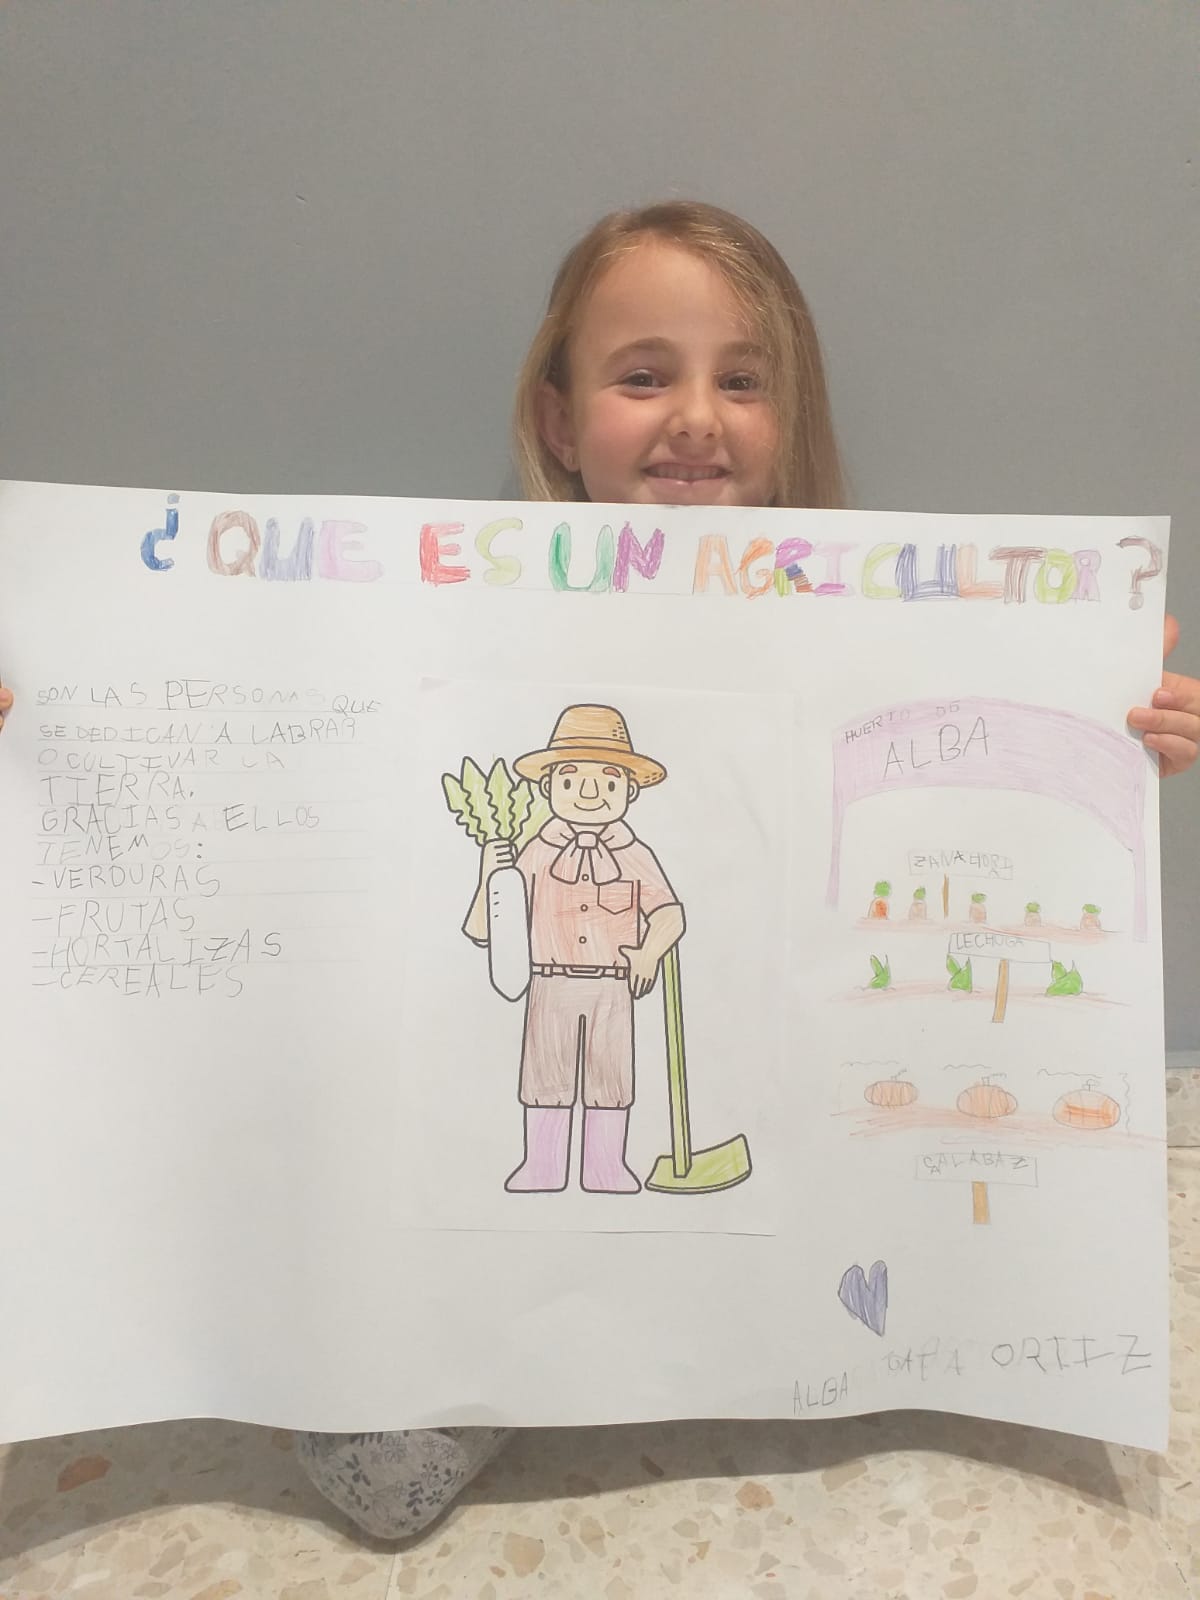 ¿QUE ES UN AGRICULTOR?
SON LAS PERSONAS QUE
SE DEDICAN A LABRAR
O CULTIVAR LA
TIERRA.
GRACIAS A ELLOS
TENEMOS:
-VERDURAS
-FRUTAS
-HORTALIZAS
-CEREALES
HUERTO DE
ALBA
ZANAHORIA
LECHUGA
CALABAZ
ALBA ORTIZ